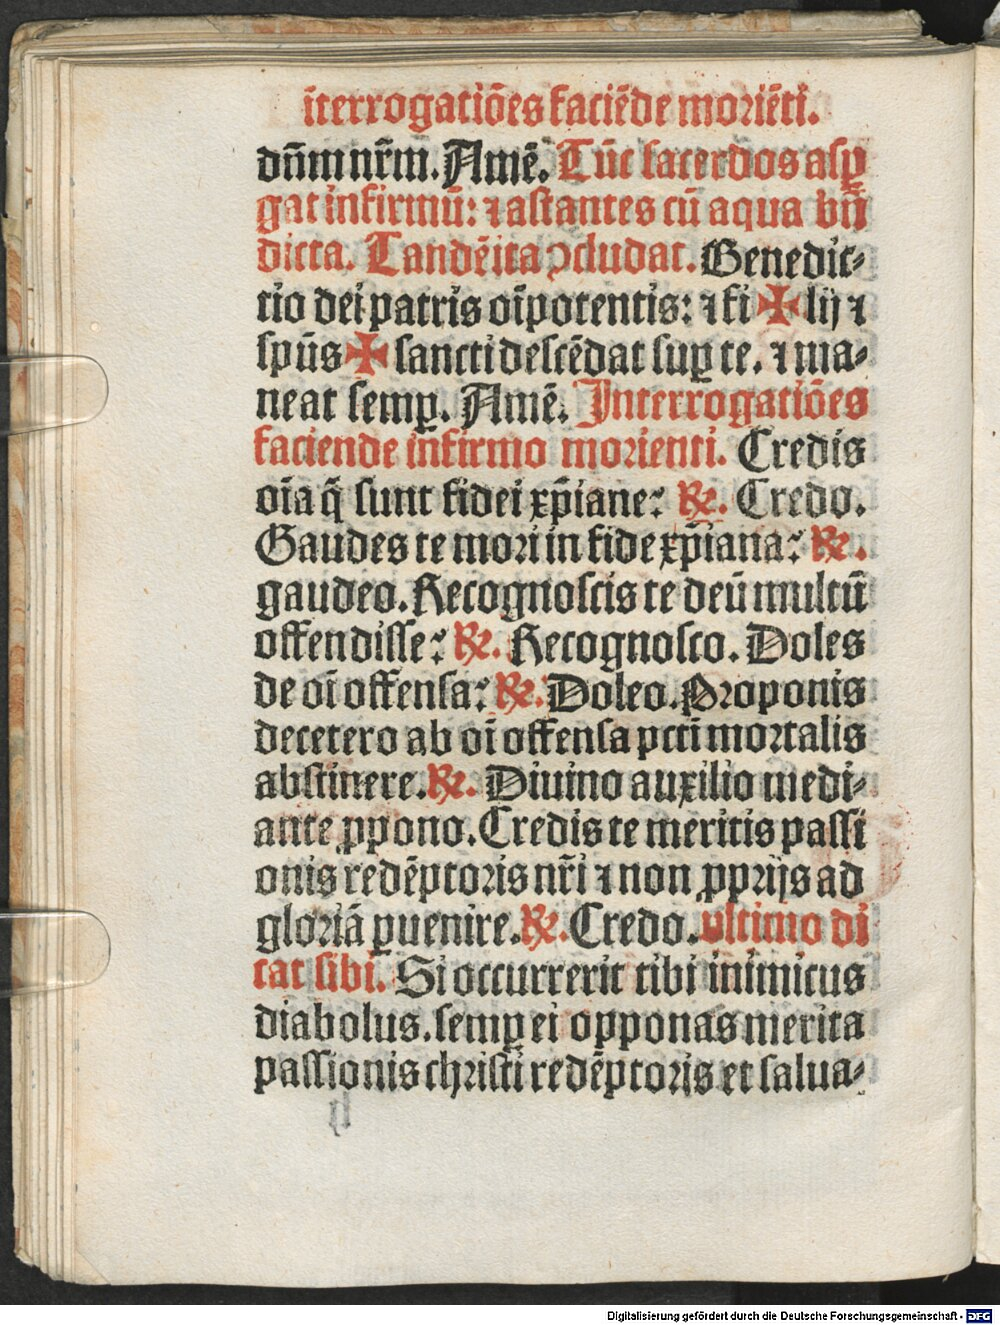 īterrogatiōes faciēde moriēti.
dn̄m nr̄m. Amē. Tūc sacerdos aſꝑ
gat infirmū: ⁊ aſtantes cū aqua bn̄
dicta. Tandē ita ↄcludat. Benedic⸗
tio dei patris oīpotentis: ⁊ fi ✠ lij ⁊
ſpūs ✠ ſancti deſcēdat ſuꝑ te. ⁊ ma⸗
neat ſemꝑ. Amē. Interrogatiōes
faciende infirmo morienti. Credis
oīa q̄ ſunt fidei xp̄iane? ℞. Credo.
Gaudes te mori in fide xp̄iana? ℞.
gaudeo. Recognoſcis te deū multū
offendiſſe? ℞. Recognoſco. Doles
de oī offenſa? ℞. Doleo. Proponis
decetero ab oī offenſa pctī mortalis
abſtinere. ℞. Diuino auxilio medi⸗
ante ꝓpono. Credis te meritis paſſi
onis redēptoris nr̄i ⁊ non ꝓprijs ad
gloriā ꝑuenire. ℞. Credo. ultimo di
cat ſibi. Si occurrerit tibi inimicus
diabolus. ſemꝑ ei opponas merita
paſſionis chriſti redēptoris et ſalua⸗
Digitalisierung gefördert durch die Deutsche Forschungsgemeinschaft - DFG